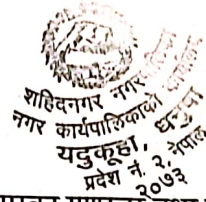 शहिदनगर नगरपालिका
नगर कार्यपालिकाको कार्यालय
यदुकूहा, धनुषा
प्रदेश नं. २, नेपाल
२०७३